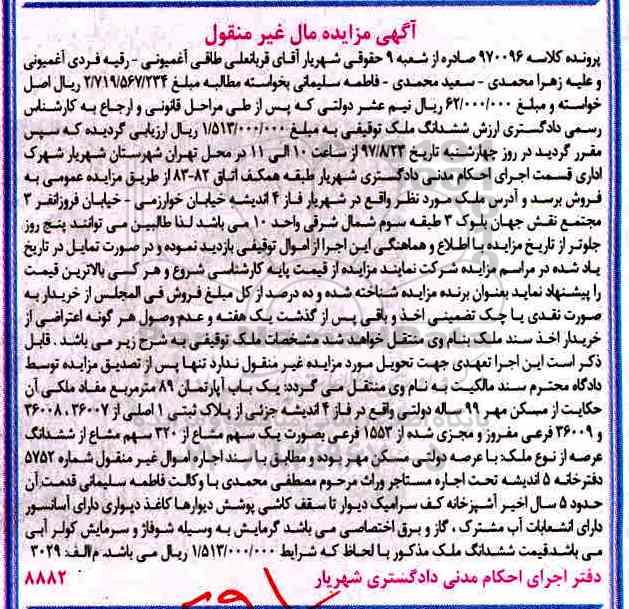 آگهی مزایده مال غیر منقول
پرونده کلاسه ۹۷۰۰۹۶ صادره از شعبه ۹ حقوقی شهریار آقای قربانعلی طاقی آغمیونی - رقیه فردی آغمیونی
و علیه زهرا محمدی - سعید محمدی - فاطمه سلیمانی بخواسته مطالبه مبلغ ۲/۷۱۹/۵۶۷/۲۳۴ ریال اصل
خواسته و مبلغ ۶۲/۰۰۰/۰۰۰ ریال نیم عشر دولتی که پس از طی مراحل قانونی و ارجاع به کارشناس
رسمی دادگستری ارزش ششدانگ ملک توقیفی به مبلغ ۱/۵۱۳/۰۰۰/۰۰۰ ریال ارزیابی گردیده که سپس
مقرر گردید در روز چهارشنبه تاریخ ۹۷/۸/۲۳ از ساعت ۱۰ الی ۱۱ در محل تهران شهرستان شهریار شهرک
اداری قسمت اجرای احکام مدنی دادگستری شهریار طبقه همکف اتاق ۸۲-۸۳ از طریق مزایده عمومی به
فروش برسد و آدرس ملک مورد نظر واقع در شهریار فاز ۴ اندیشه خیابان خوارزمی - خیابان فروزانفر ۳
مجتمع نقش جهان بلوک ۳ طبقه سوم شمال شرقی واحد ۱۰ می باشد لذا طالبین می توانند پنج روز
جلوتر از تاریخ مزایده با اطلاع و هماهنگی این اجرا از اموال توقیفی بازدید نموده و در صورت تمایل در تاریخ
یاد شده در مراسم مزایده شرکت نمایند مزایده از قیمت پایه کارشناسی شروع و هر کسی بالاترین قیمت
را پیشنهاد نماید بعنوان برنده مزایده شناخته شده و ده درصد از کل مبلغ فروش فی المجلس از خریدار به
صورت نقدی یا چک تضمینی اخذ و باقی پس از گذشت یک هفته و عدم وصول هر گونه اعتراضی از
خریدار اخذ سند ملک بنام وی منتقل خواهد شد مشخصات ملک توقیفی به شرح زیر می باشد . قابل
ذکر است این اجرا تعهدی جهت تحویل مورد مزایده غیر منقول ندارد تنها پس از تصدیق مزایده توسط
دادگاه محترم سند مالکیت به نام وی منتقل می گردد: یک باب آپارتمان ۸۹ مترمربع مفاد ملکی آن
حکایت از مسکن مهر ۹۹ ساله دولتی واقع در فاز ۴ اندیشه جزئی از پلاک ثبتی ۱ اصلی از ۳۶۰۰۷ ، ۳۶۰۰۸
و ۳۶۰۰۹ فرعی مفروز و مجزی شده از ۱۵۵۳ فرعی بصورت یک سهم مشاع از ۳۲۰ سهم مشاع از ششدانگ
عرصه از نوع ملک: با عرصه دولتی مسکن مهر بوده و مطابق با سند اجاره اموال غیر منقول شماره ۵۷۵۲
دفترخانه ۵ اندیشه تحت اجاره مستاجر وراث مرحوم مصطفی محمدی با وکالت فاطمه سلیمانی قدمت آن
حدود ۵ سال اخیر آشپزخانه کف سرامیک دیوار تا سقف کاشی پوشش دیوارها کاغذ دیواری دارای آسانسور
دارای انشعابات آب مشترک ، گاز و برق اختصاصی می باشد گرمایش به وسیله شوفاژ و سرمایش کولر آبی
می باشدقیمت ششدانگ ملک مذکور با لحاظ که شرایط ۱/۵۱۳/۰۰۰/۰۰۰ ریال می باشد. م الف: ۳۰۲۹
دفتر اجرای احکام مدنی دادگستری شهریار ۸۸۸۲